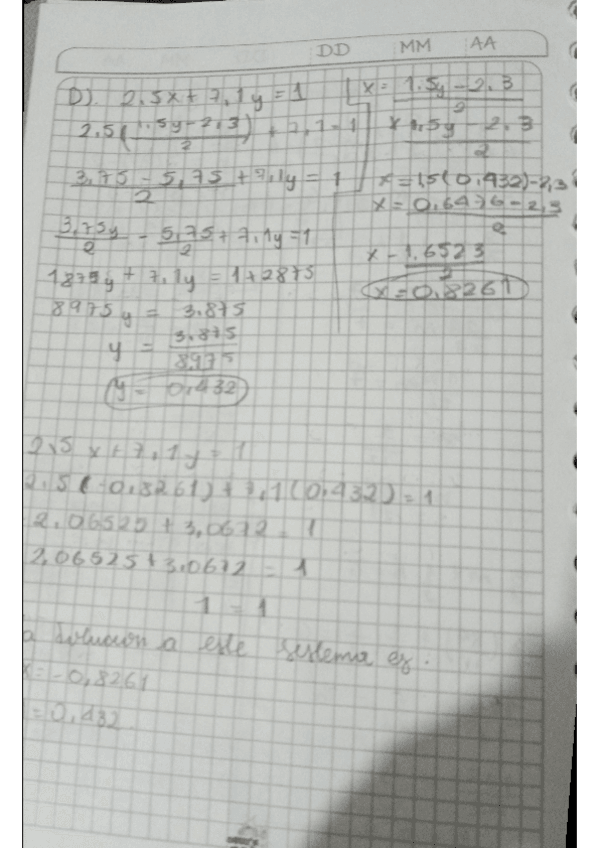 DD MM AA
D). 2,5x + 7,1y = 1
2,5(1.5y-2,3)/2 + 7,1=1
3,75 - 5,75/2 + 7,1y = 1
3,75y/2 - 5,75/2 + 7,1y=1
1875y + 7,1y = 1+2875
8975y = 3.875
y = 3.875/8975
y = 0,432
x = 1.5y-2.3/2
x 1.5y - 2.3/2
x = 1,5(0,432)-2,3
x = 0,6476-2,3/2
x - 1.6523/2
x = 0,8261
2.5 x + 7,1y = 1
2.5(-0,8261) + 7,1(0,432) = 1
2.06525 + 3,0672 = 1
2,06525 + 3.0672 = 1
1 = 1
a solucion a este sistema es.
x = -0,8261
= 0,432